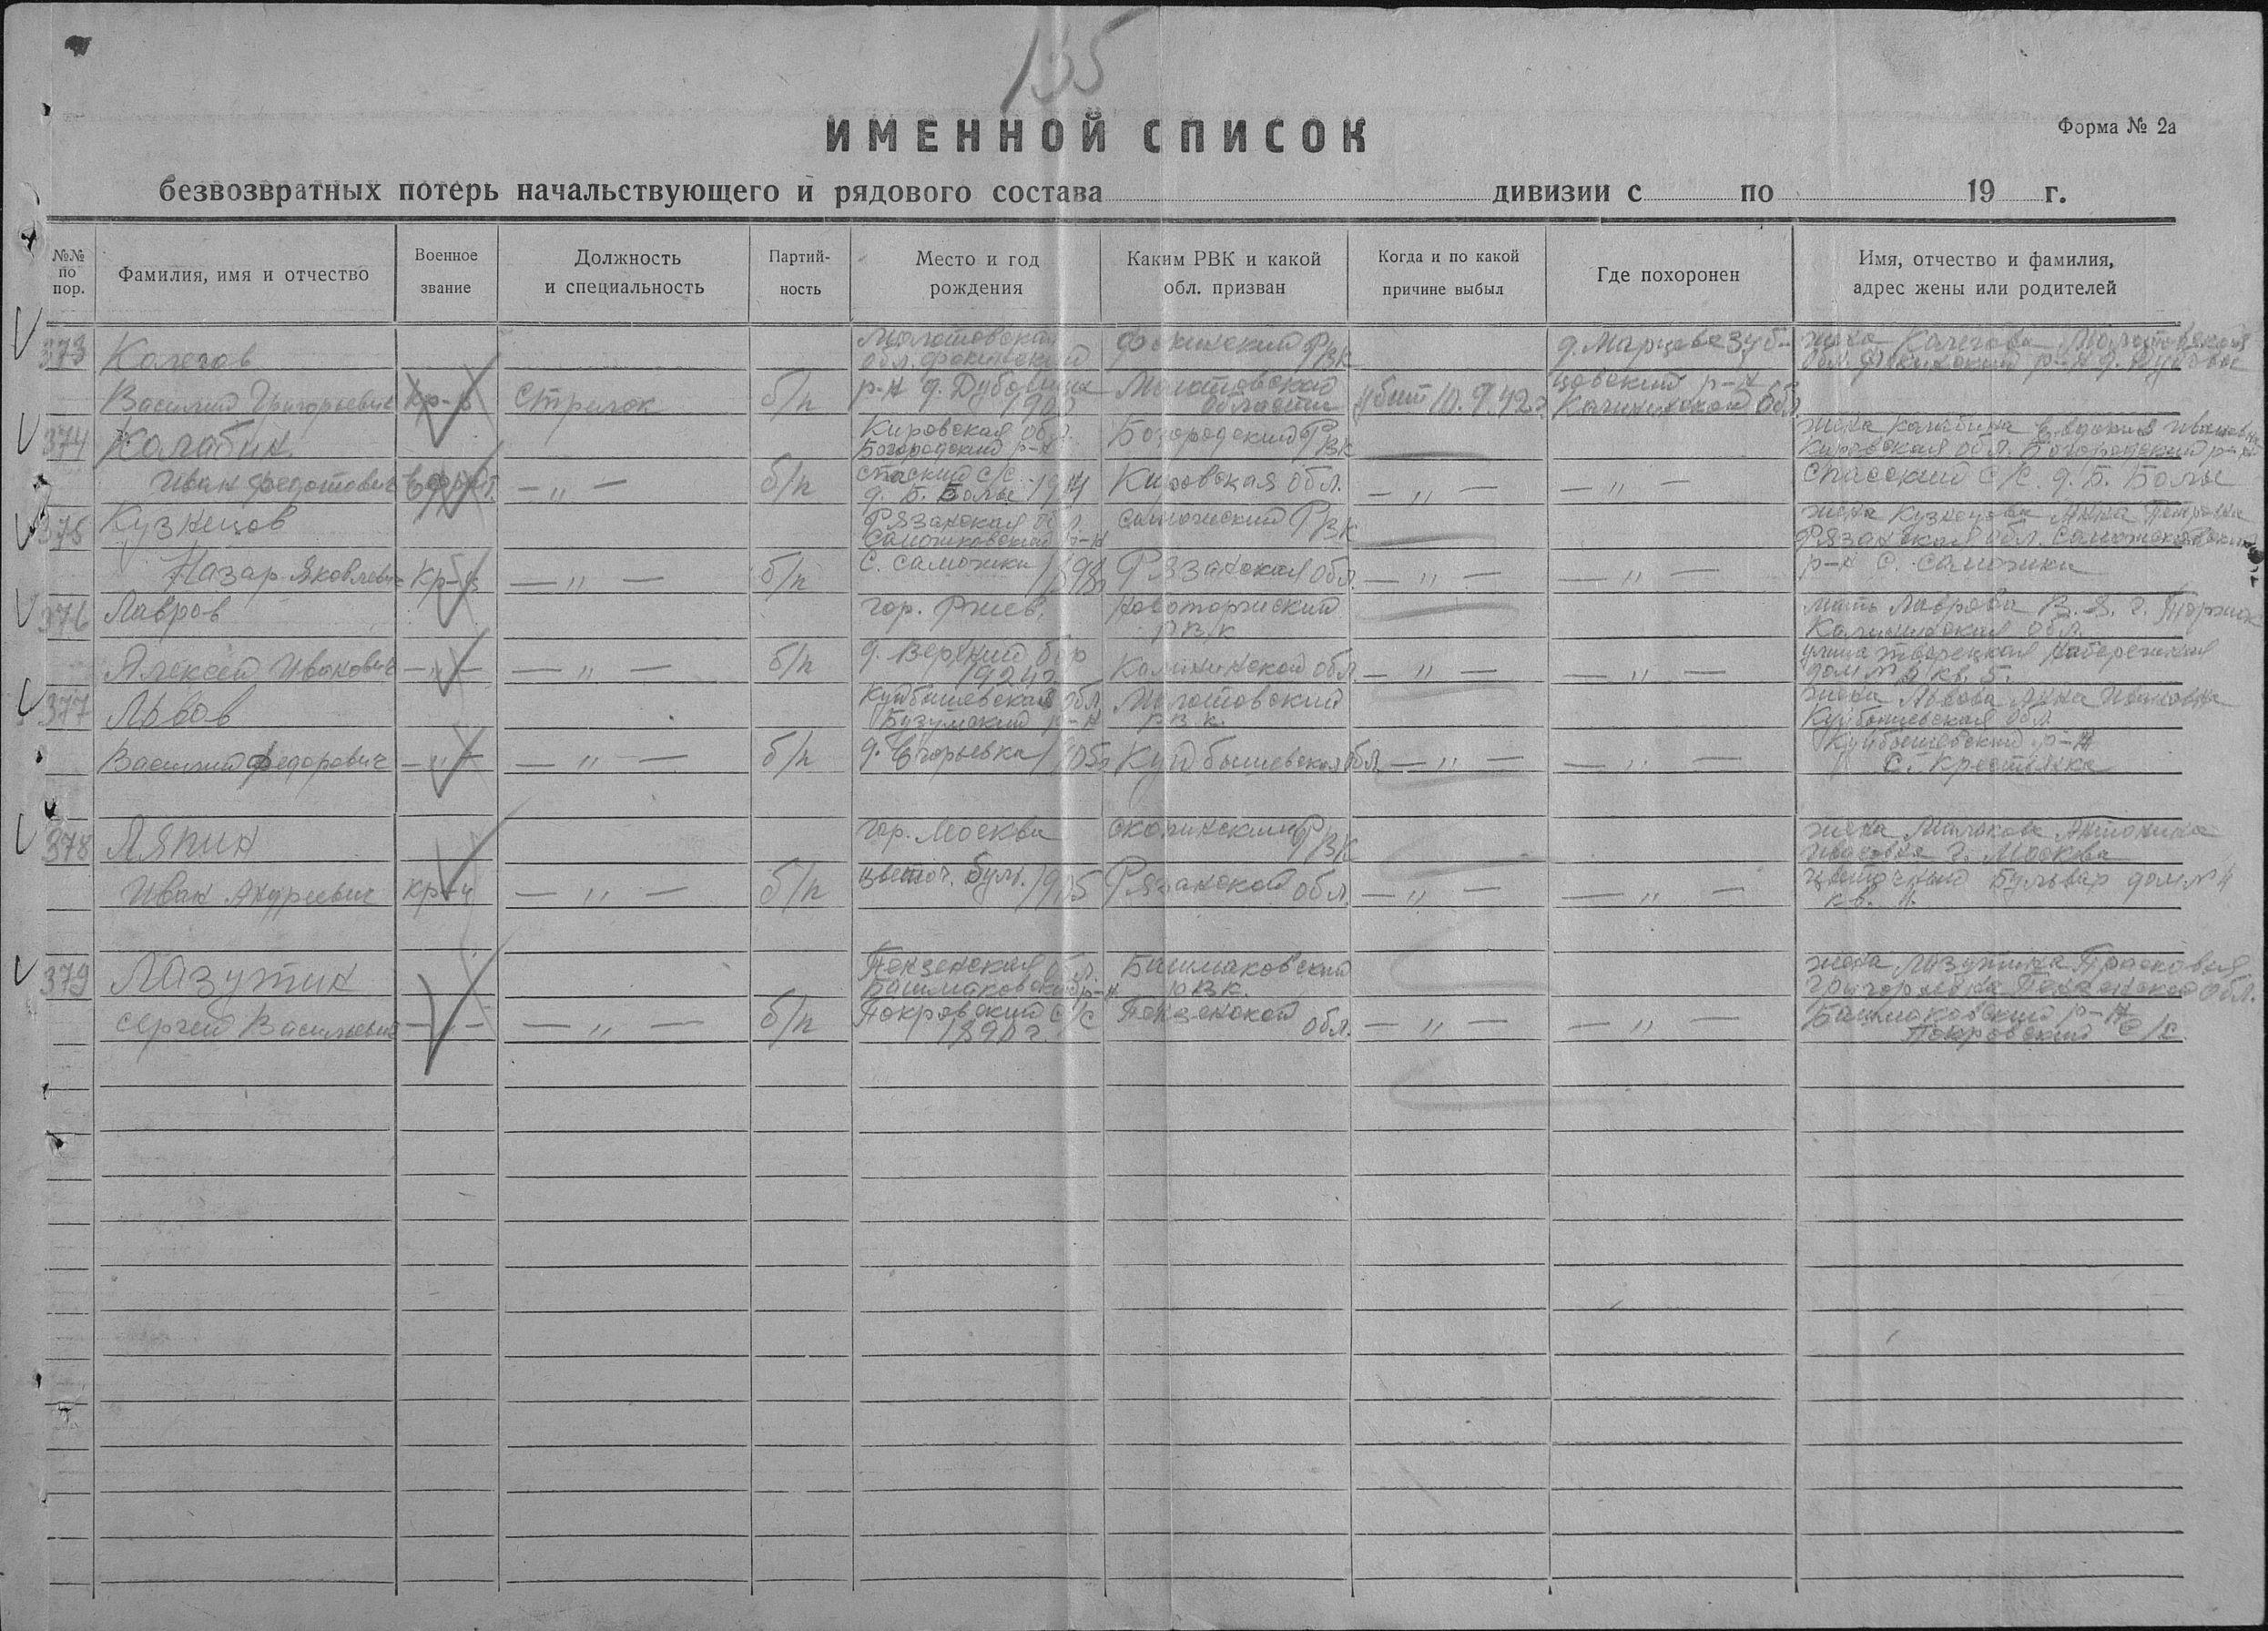 135
ИМЕННОЙ СПИСОК
Форма № 2а
безвозвратных потерь начальствующего и рядового состава дивизии с по 19 г.
№№ по пор.
Фамилия, имя и отчество
Военное звание
Должность и специальность
Партий-ность
Место и год рождения
Каким РВК и какой обл. призван
Когда и по какой причине выбыл
Где похоронен
Имя, отчество и фамилия, адрес жены или родителей
373 Калегов
Василий Григорьевич
кр-ц
Стрелок
б/п
Молотовская
обл. Фокинский
р-н д.
Фокинский РВК
Молотовской
области
Убит 10.9.42г.
д. Марцево Зуб-
цовский р-н
Калининской обл.
жена Калегова Молотовская
обл. Фокинский р-н д.
374 Колабин
Иван Федотович
— „ —
б/п
Кировская обл.
Богородский р-н
Спаский С/С
д. Б. Болы 1914
Богородский РВК
Кировская обл.
— „ —
— „ —
жена Колабина Евдокия Ивановна
Кировская обл. Богородский р-н
Спасский С/С. д. Б. Болы
375 Кузнецов
Назар Яковлевич
кр-ц
— „ —
б/п
Рязанская обл.
р-н
С. 1898г
РВК
Рязанская обл.
— „ —
— „ —
жена Кузнецова Анна Петровна
Рязанская обл.
р-н С.
376 Лавров
Алексей Иванович
— „ —
— „ —
б/п
гор. Ржев,
д. Верхний бор
1924г.
Новоторжский
РВК
Калининской обл.
— „ —
— „ —
мать Лаврова В. Я. г. Торжок
Калининская обл.
улица Тверецкая набережная
дом № кв. 5.
377 Львов
Василий Федорович
— „ —
— „ —
б/п
Куйбышевская обл.
р-н
д. Егорьевка 1905г
Молотовский
РВК.
Куйбышевская обл.
— „ —
— „ —
жена Львова Анна Ивановна
Куйбышевская обл.
Куйбышевский р-н
С. Крестьянка
378 Ляпин
Иван Андреевич
кр-ц
— „ —
б/п
гор. Москва
цветоч. бульв. 1905
Скопинский РВК
Рязанской обл.
— „ —
— „ —
жена Антонина
Ивановна г. Москва
цветочный Бульвар дом № 4
кв.
379 Лазуткин
Сергей Васильевич
— „ —
— „ —
б/п
Пензенская обл.
Башмаковский р-н
Покровский С/С
1890г.
Башмаковский
РВК.
Пензенской обл.
— „ —
— „ —
жена Лазуткина Прасковья
Григорьевна Пензенской обл.
Башмаковский р-н
Покровский С/С.